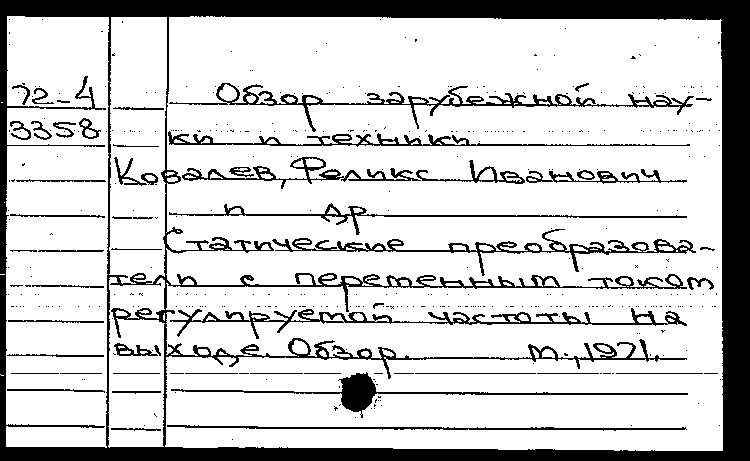 72-4
3358
Обзор зарубежной нау-
ки и техники.
Ковалев, Феликс Иванович
и др.
Статические преобразова-
тели с переменным током
регулируемой частоты на
выходе. Обзор. М., 1971.